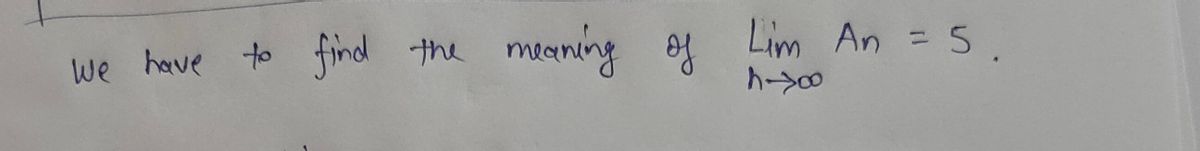 We have to find the meaning of Lim An = 5.
n→∞